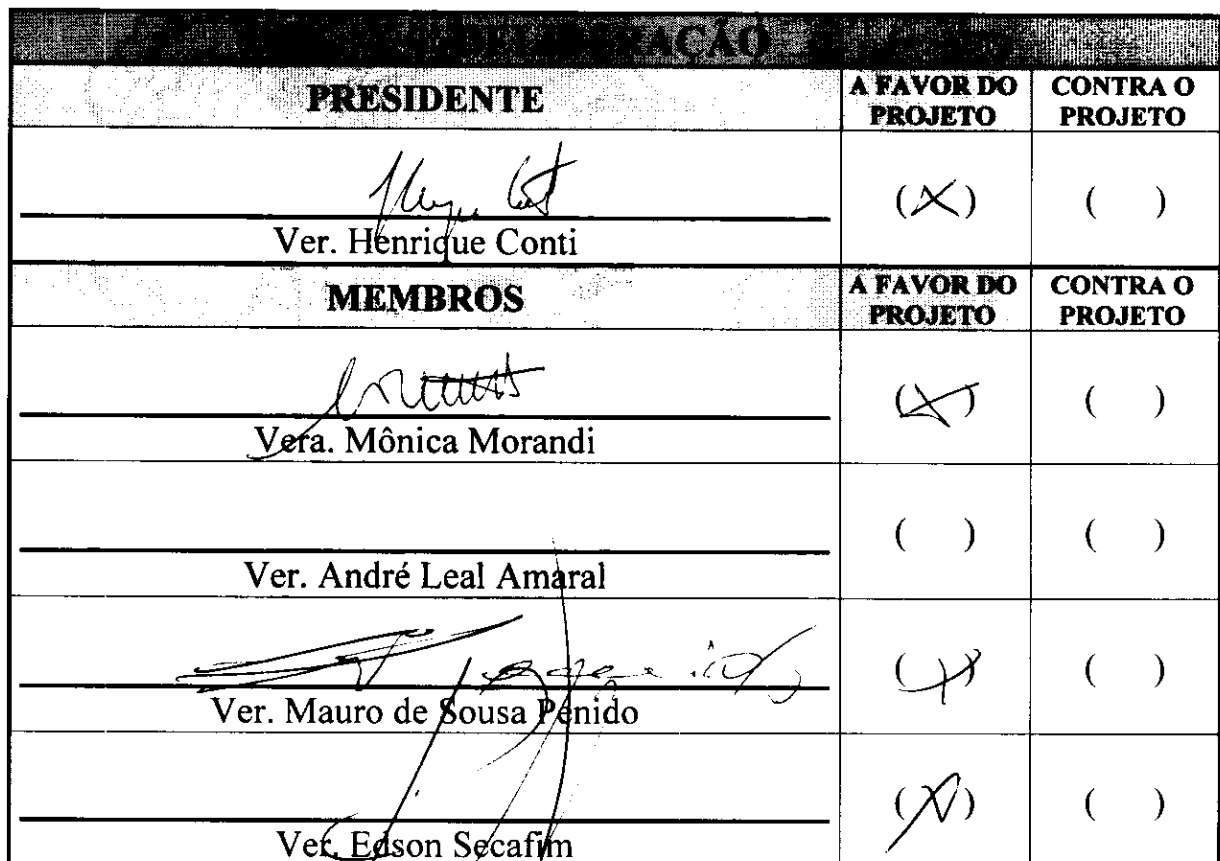 DELIBERAÇÃO
PRESIDENTE
A FAVOR DO PROJETO
CONTRA O PROJETO
(X)
( )
Ver. Henrique Conti
MEMBROS
A FAVOR DO PROJETO
CONTRA O PROJETO
(X)
( )
Vera. Mônica Morandi
( )
( )
Ver. André Leal Amaral
(X)
( )
Ver. Mauro de Sousa Penido
(X)
( )
Ver. Edson Secafim